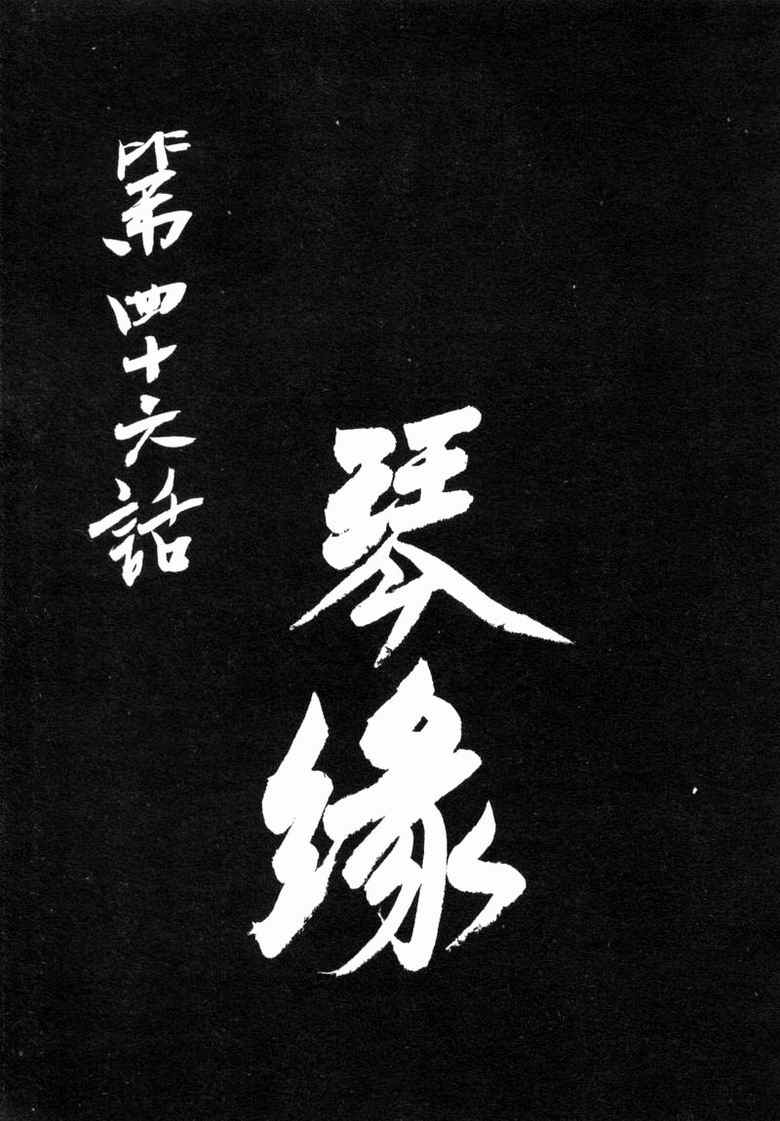 第四十六話
琴緣